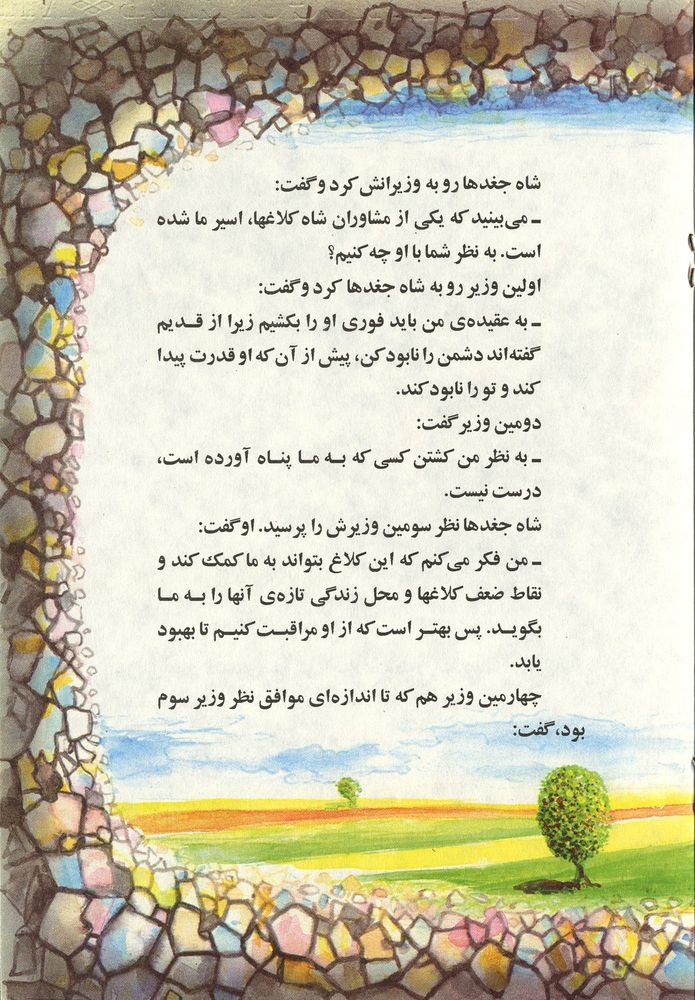 شاه جغدها رو به وزیرانش کرد و گفت:
ـ می‌بینید که یکی از مشاوران شاه کلاغها، اسیر ما شده
است. به نظر شما با او چه کنیم؟
اولین وزیر رو به شاه جغدها کرد و گفت:
ـ به عقیده‌ی من باید فوری او را بکشیم زیرا از قـدیم
گفته‌اند دشمن را نابود کن، پیش از آن که او قدرت پیدا
کند و تو را نابود کند.
دومین وزیر گفت:
ـ به نظر من کشتن کسی که بـه مـا پنـاه آورده است،
درست نیست.
شاه جغدها نظر سومین وزیرش را پرسید. او گفت:
ـ من فکر می‌کنم که این کلاغ بتواند به ما کمک کند و
نقاط ضعف کلاغها و محل زندگی تازه‌ی آنها را بـه مـا
بگویـد. پس بهتـر است که از او مراقبـت کنیـم تا بهبود
یابد.
چهارمین وزیر هم که تا اندازه‌ای موافق نظر وزیر سوم
بود، گفت: